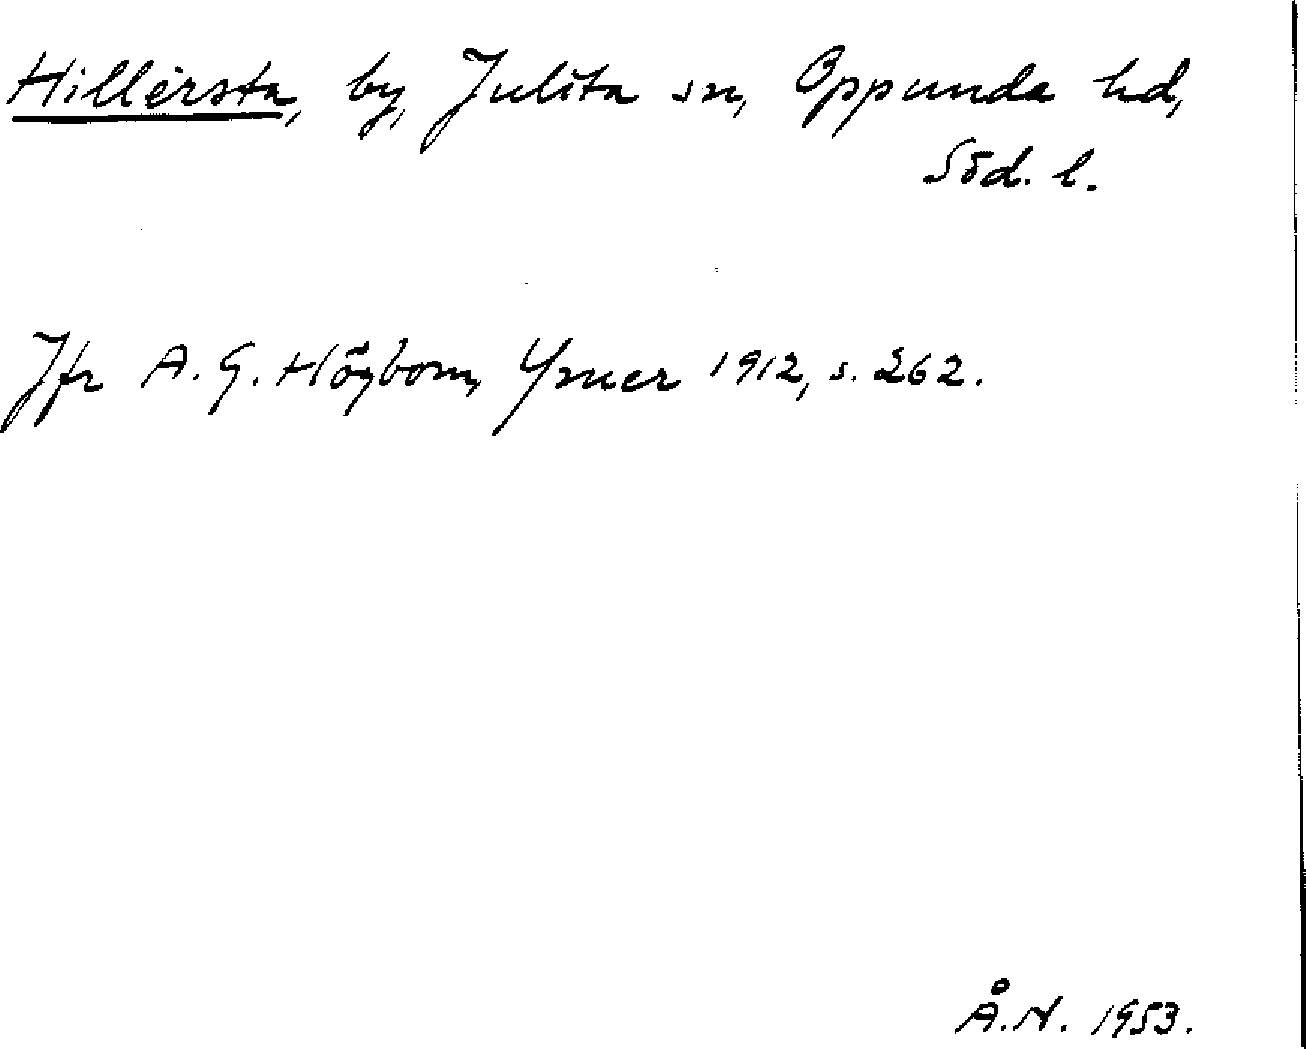 Hillersta, by, Julita sn, Oppunda hd,
Söd. l.
Jfr A. G. Högbom, Ymer 1912, s. 262.
Å. N. 1953.